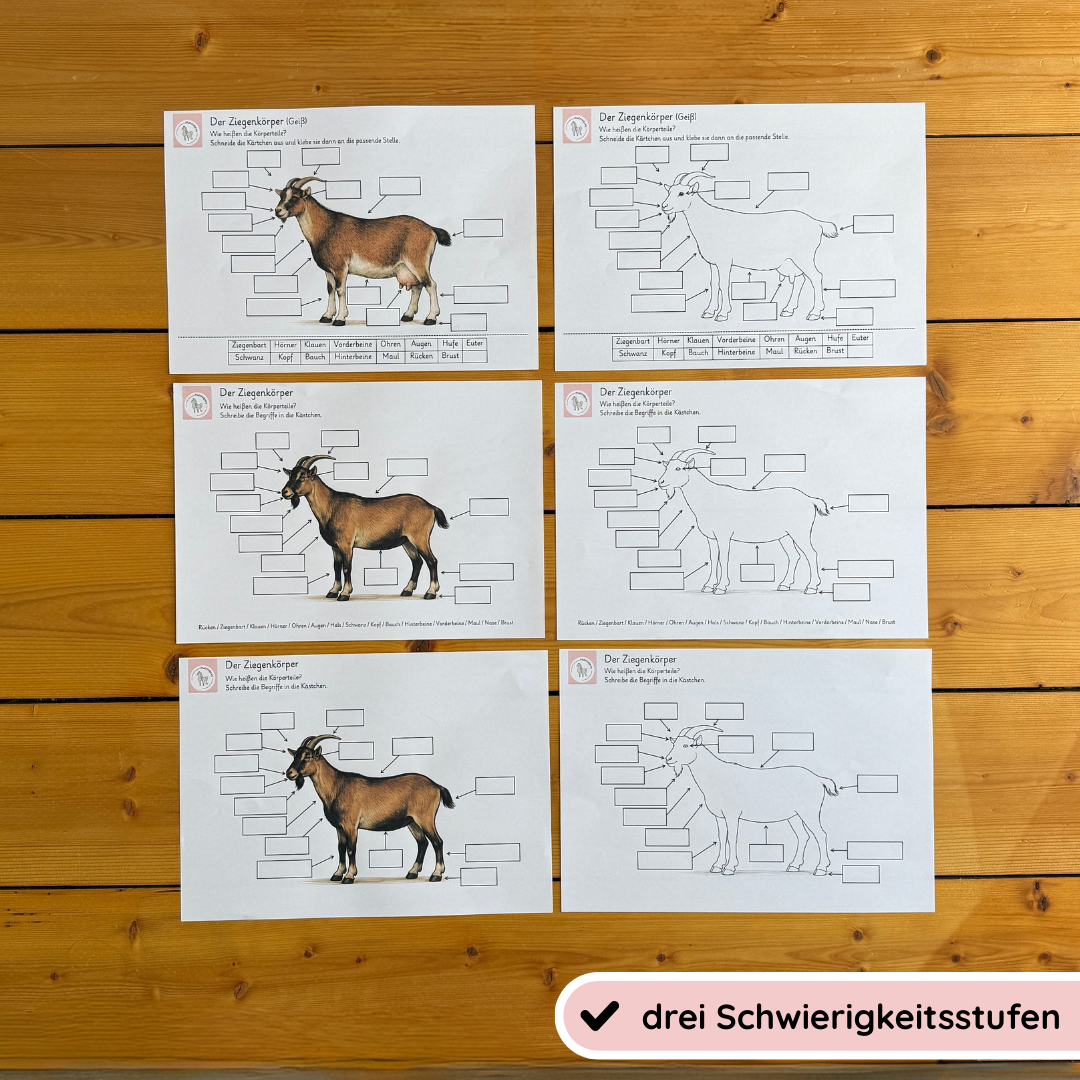 Der Ziegenkörper (Geiß)
Wie heißen die Körperteile?
Schneide die Kärtchen aus und klebe sie dann an die passende Stelle.
Ziegenbart Hörner Klauen Vorderbeine Ohren Augen Hufe Euter
Schwanz Kopf Bauch Hinterbeine Maul Rücken Brust
Der Ziegenkörper (Geiß)
Wie heißen die Körperteile?
Schneide die Kärtchen aus und klebe sie dann an die passende Stelle.
Ziegenbart Hörner Klauen Vorderbeine Ohren Augen Hufe Euter
Schwanz Kopf Bauch Hinterbeine Maul Rücken Brust
Der Ziegenkörper
Wie heißen die Körperteile?
Schreibe die Begriffe in die Kästchen.
Rücken / Ziegenbart / Klauen / Hörner / Ohren / Augen / Hals / Schwanz / Kopf / Bauch / Hinterbeine / Vorderbeine / Maul / Nase / Brust
Der Ziegenkörper
Wie heißen die Körperteile?
Schreibe die Begriffe in die Kästchen.
Rücken / Ziegenbart / Klauen / Hörner / Ohren / Augen / Hals / Schwanz / Kopf / Bauch / Hinterbeine / Vorderbeine / Maul / Nase / Brust
Der Ziegenkörper
Wie heißen die Körperteile?
Schreibe die Begriffe in die Kästchen.
Der Ziegenkörper
Wie heißen die Körperteile?
Schreibe die Begriffe in die Kästchen.
drei Schwierigkeitsstufen